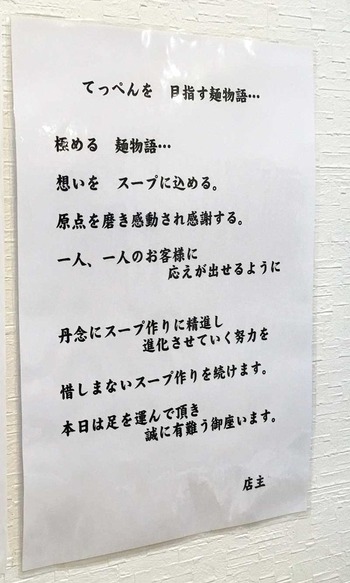 てっぺんを　目指す麺物語…
極める　麺物語…
想いを　スープに込める。
原点を磨き感動され感謝する。
一人、一人のお客様に
応えが出せるように
丹念にスープ作りに精進し
進化させていく努力を
惜しまないスープ作りを続けます。
本日は足を運んで頂き
誠に有難う御座います。
店主